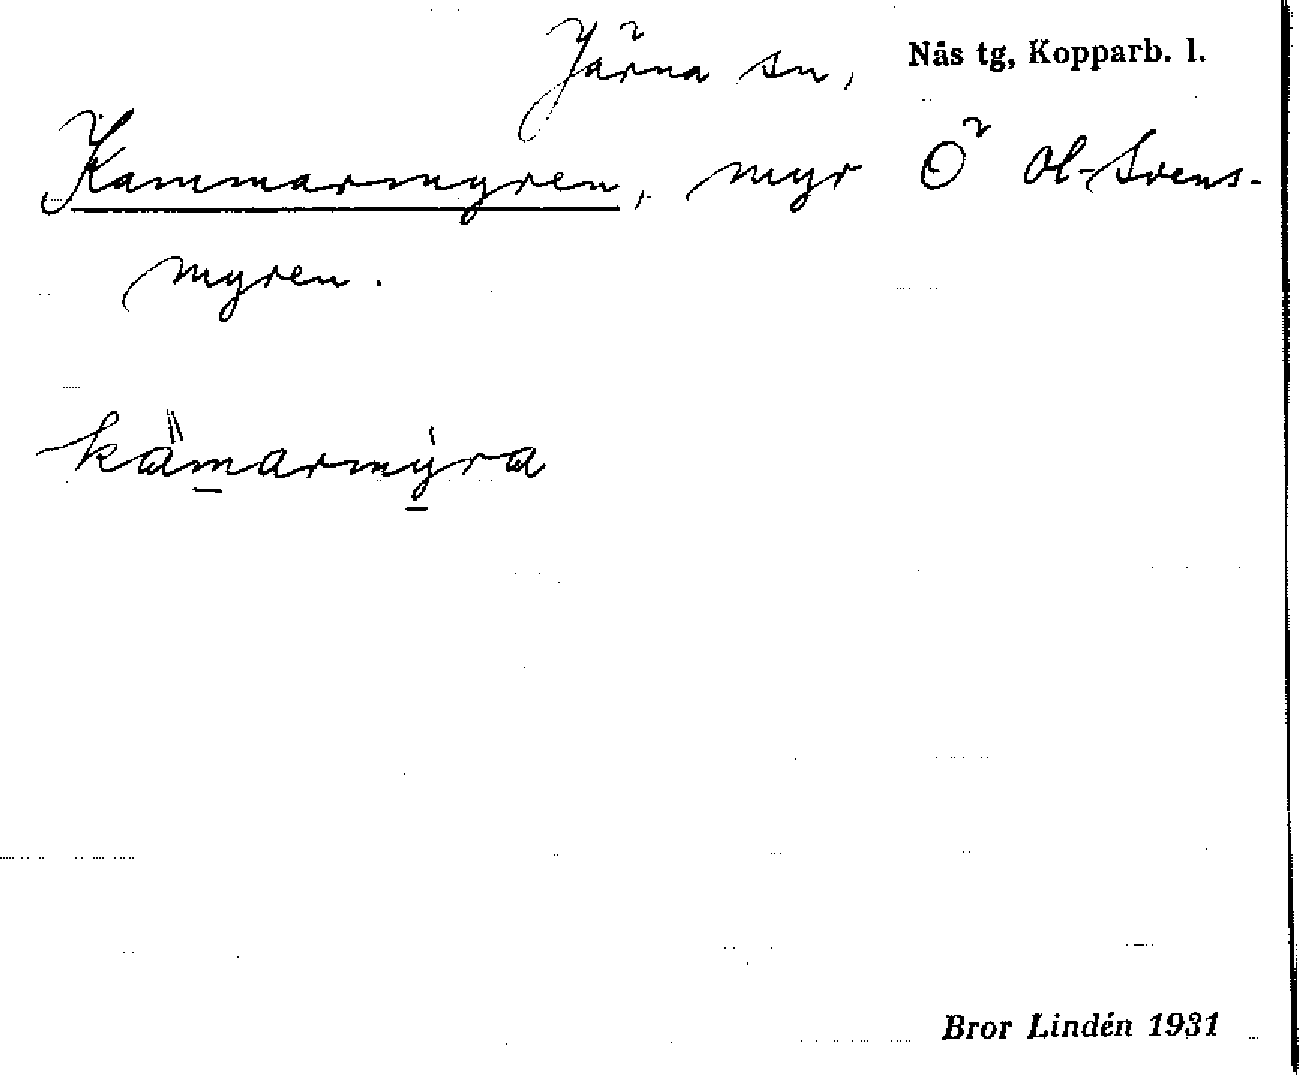 Järna sn, Nås tg, Kopparb. l.
Kammarmyren, myr Ö Ol-Svens-
myren.
kamarmyra
Bror Lindén 1931